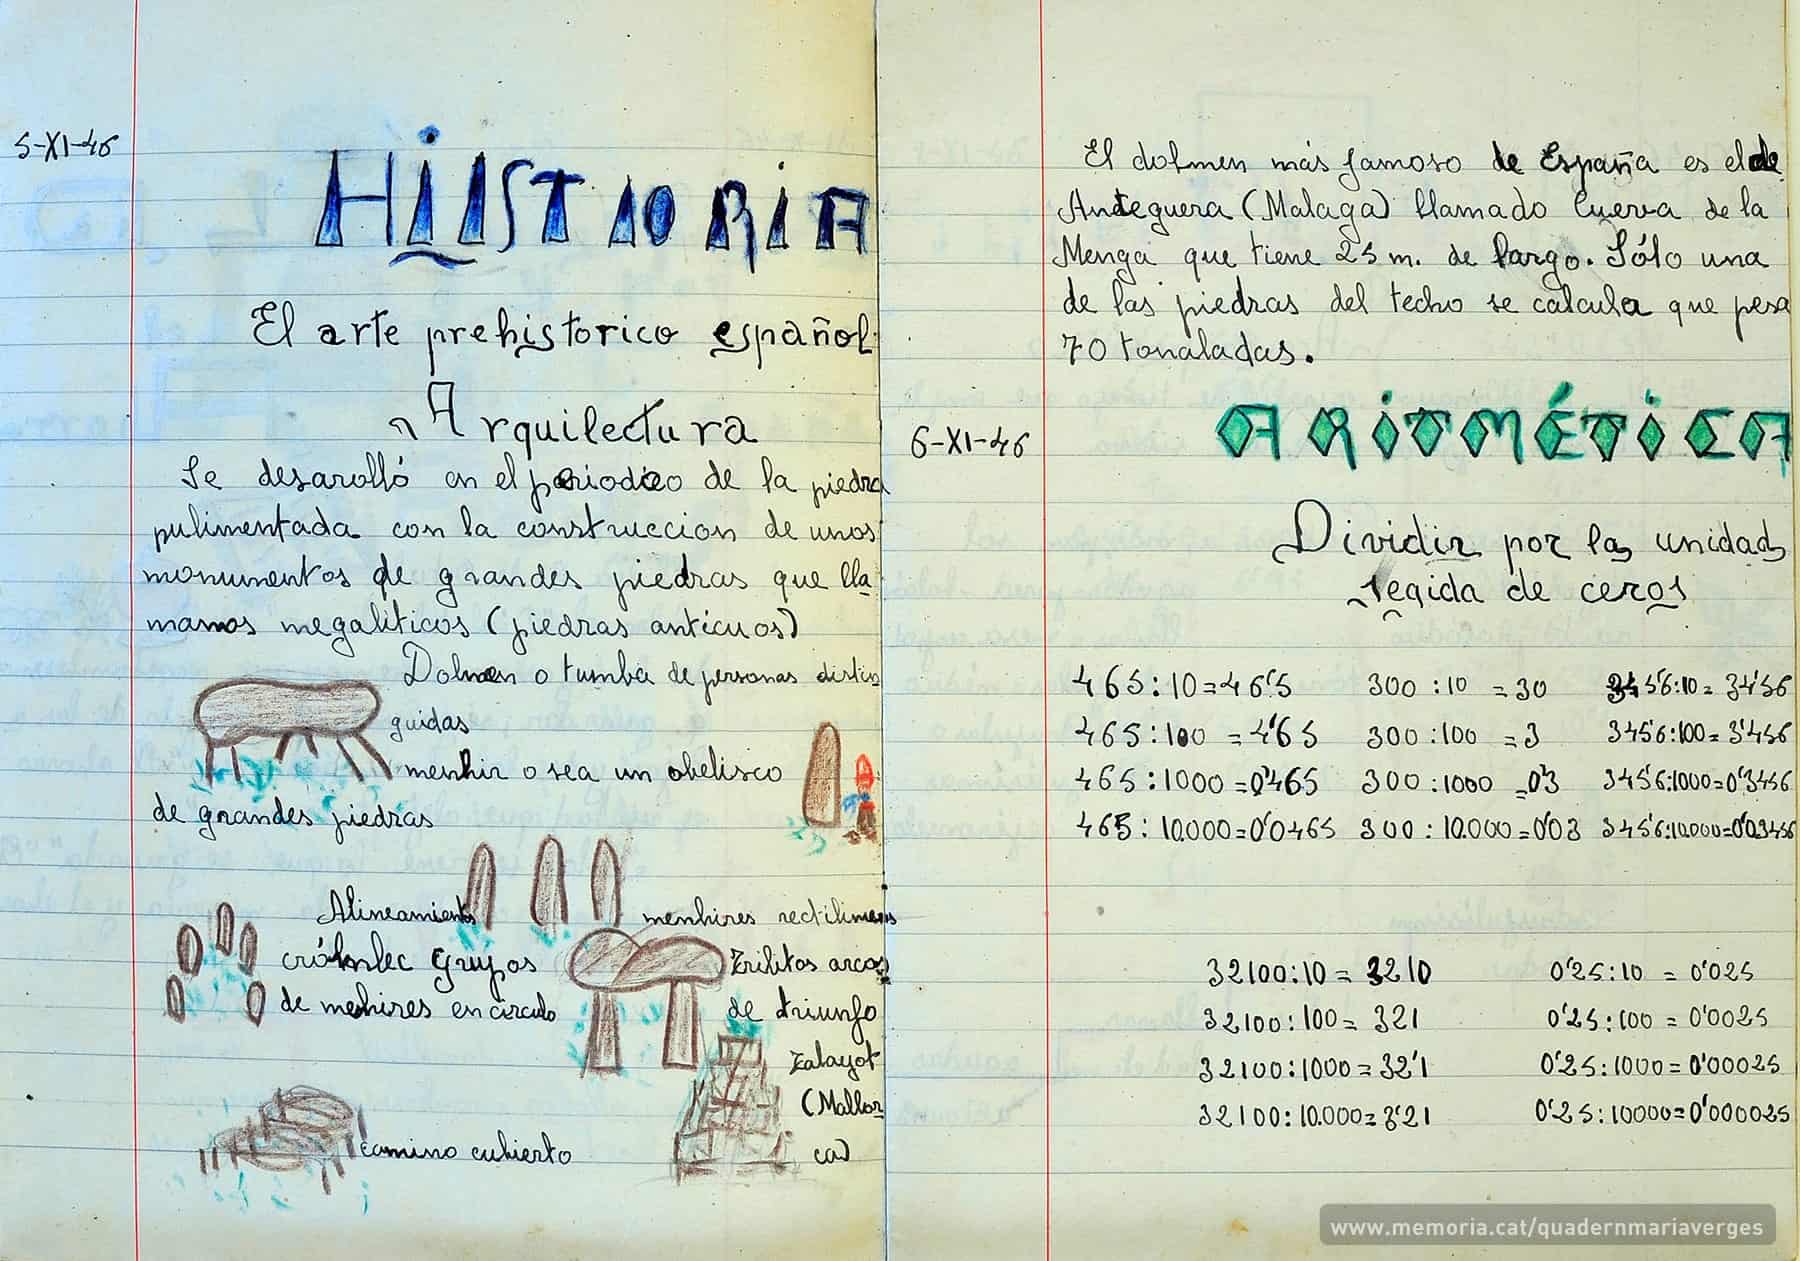 5-XI-46
HISTORIA
El arte prehistorico español.
Arquitectura
Se desarolló en el periodico de la piedra
pulimentada con la construccion de unos
monumentos de grandes piedras que lla-
mamos megaliticos (piedras anticuos)
Dolmen o tumba de personas distin
guidas
menhir o sea un obelisco
de grandes piedras
Alineamiento menhires rectilineos
crómlec grupos
de menhires en circulo
Trilitos arcos
de triunfo
Talayot
(Mallor
ca)
camino cubierto
El dolmen más famoso de España es el de
Anteguera (Malaga) llamado Cueva de la
Menga que tiene 25 m. de largo. Sólo una
de las piedras del techo se calcula que pesa
70 tonaladas.
6-XI-46
ARITMÉTICA
Dividir por las unidad
segida de ceros
465:10=46'5 300:10 =30 3456:10= 34'56
465:100 =4'65 300:100 =3 3456:100= 3'456
465:1000=0'465 300:1000 =0'3 3456:1000=0'3456
465:10.000=0'0465 300:10.000=0'03 3456:10.000=0'03456
32100:10= 3210 0'25:10 = 0'025
32100:100= 321 0'25:100 = 0'0025
32100:1000=32'1 0'25:1000=0'00025
32100:10.000=3'21 0'25:10000=0'000025
www.memoria.cat/quadernmariaverges